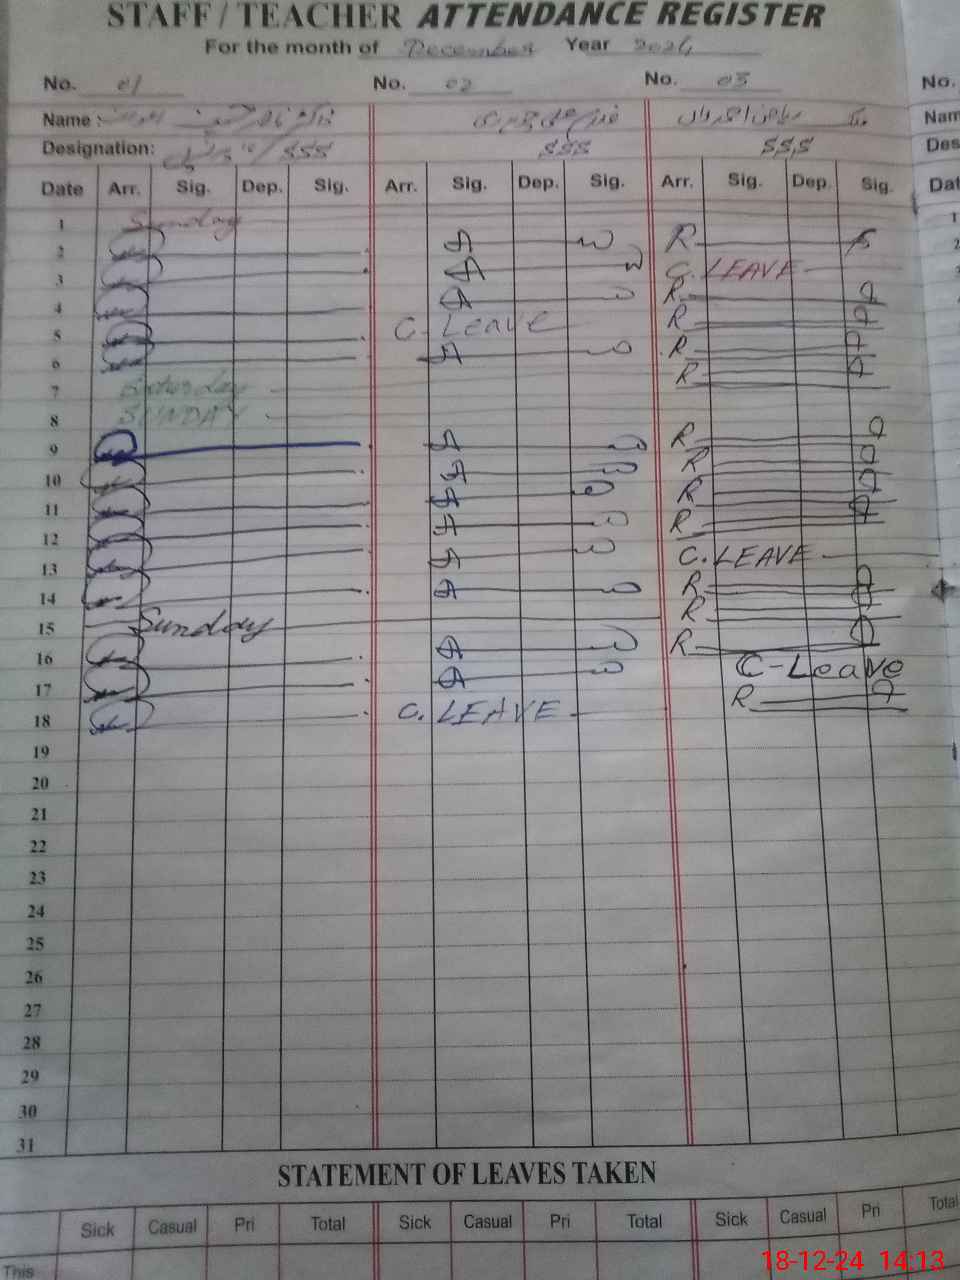 STAFF / TEACHER ATTENDANCE REGISTER
For the month of December Year 2024
No. 01 No. 02 No. 03 No.
Name : Nam
Designation: SSS SSS SSS Des
Date Arr. Sig. Dep. Sig. Arr. Sig. Dep. Sig. Arr. Sig. Dep. Sig. Dat
1 Sunday 1
2 R 2
3 C. LEAVE
4 R
5 C. Leave R
6 R
7 Saturday R
8 SUNDAY
9 R
10 R
11 R
12 R
13 C. LEAVE
14 R
15 Sunday R
16 R
17 C-Leave
18 C. LEAVE R
19
20
21
22
23
24
25
26
27
28
29
30
31
STATEMENT OF LEAVES TAKEN
Sick Casual Pri Total Sick Casual Pri Total Sick Casual Pri Total
This
18-12-24 14:13